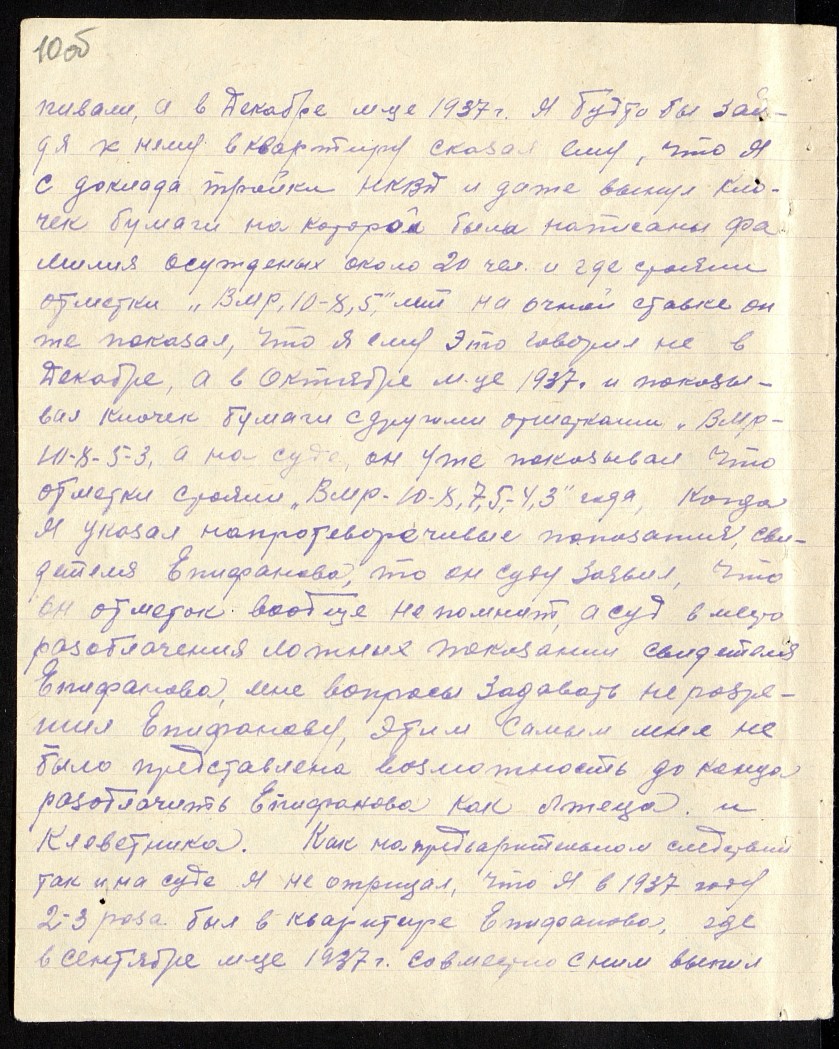 10об
пивали, а в Декабре м-це 1937 г. Я будто бы зай-
дя к нему в квартиру сказал ему, что я
с доклада тройки НКВД и даже вынул кло-
чек бумаги на которой была написаны фа
милия осужденых около 20 чел. и где стояли
отметки „ВМР, 10-8, 5," лет на очной ставке он
же показал, что я ему это говорил не в
Декабре, а в Октябре м-це 1937. и показы-
вал клочек бумаги с другими отметками „ВМР-
10-8-5-3, а на суде, он уже показывал что
отметки стояли „ВМР-10-8,7,5,-4,3" года, Когда
Я указал на протеворечивые показания, сви-
детеля Епифанова, то он суду заявил, что
он отметок вообще не помнит, а суд вместо
разоблачения ложных показании свидетеля
Епифанова, мне вопросы задавать не разре-
шил Епифанову, этим самым мне не
было представлена возможность до конца
разоблачить Епифанова как лжеца. и
клеветника. Как на предварительном следствии
так и на суде Я не отрицал, что Я в 1937 году
2-3 раза был в квартире Епифанова, где
в сентябре м-це 1937 г. совместно с ним выпил